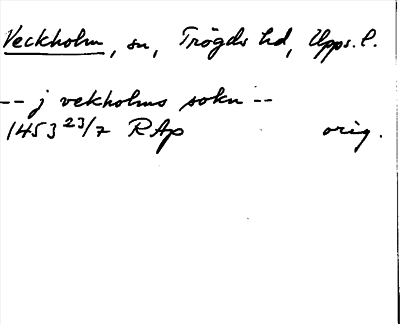 Veckholm, sn, Trögds hd, Upps. l.
-- j vekholms sokn --
1453 23/7 RAp orig.